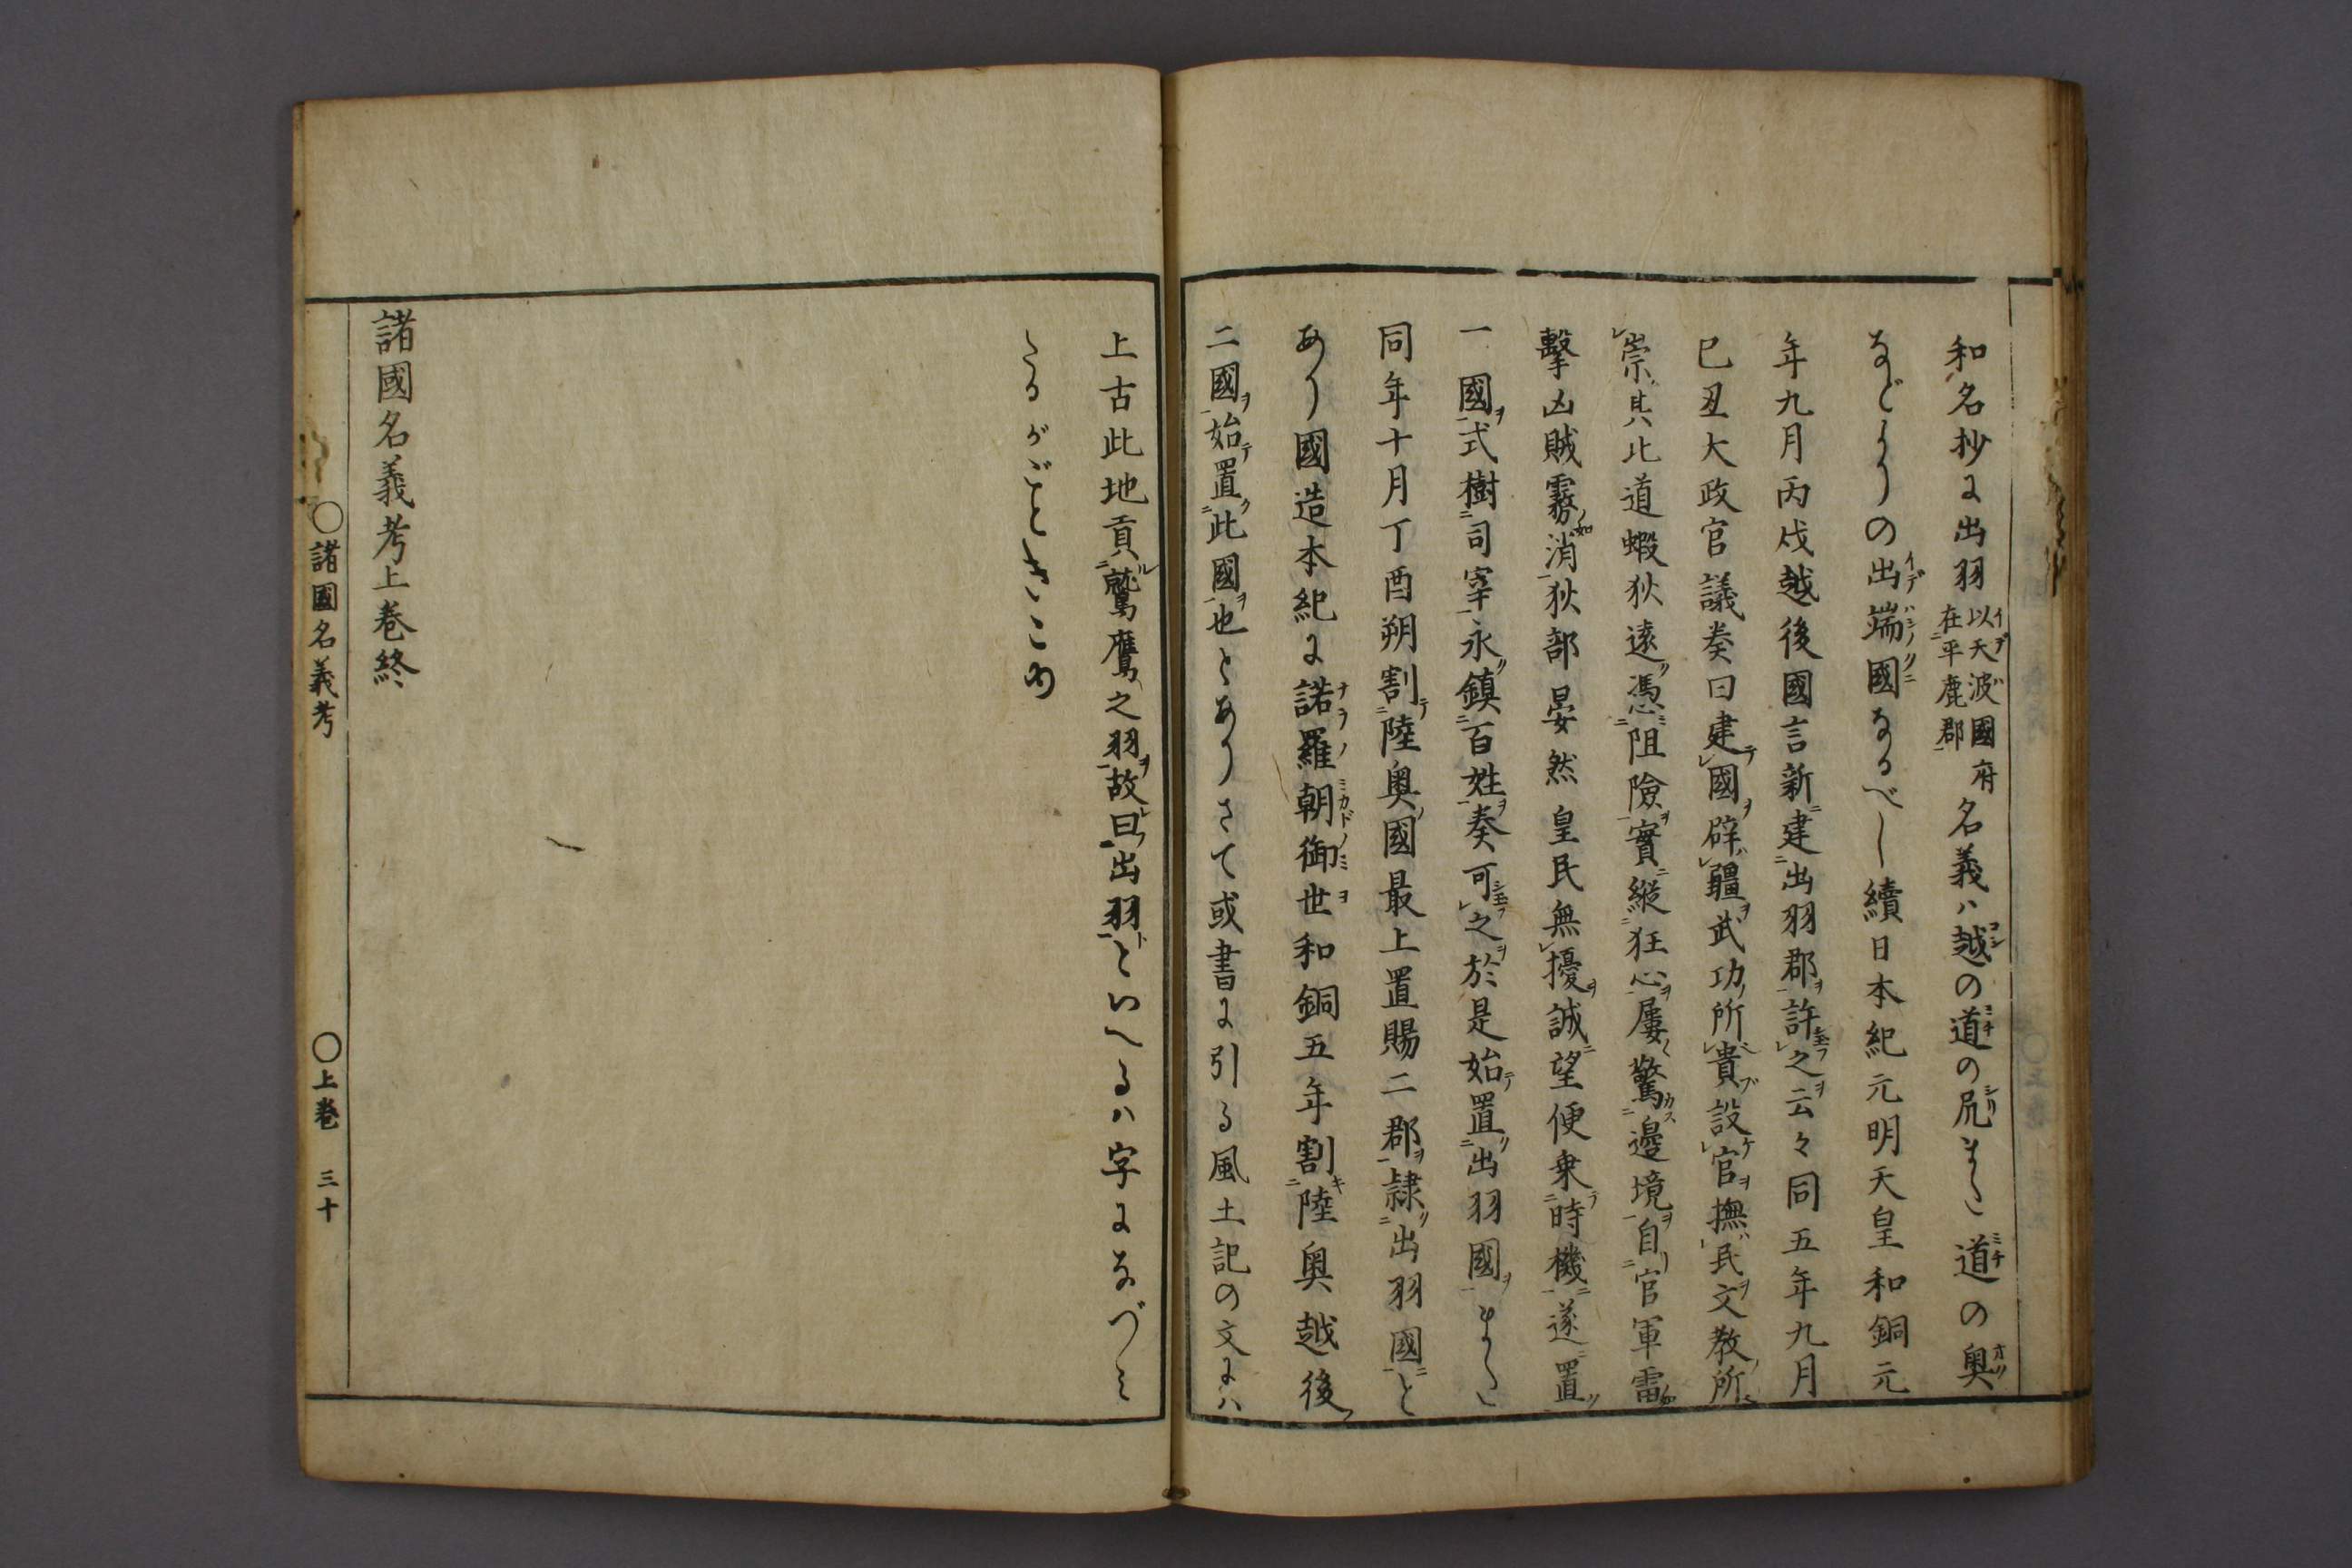 和名抄に出羽以天波國府在平鹿郡名義ハ越の道の尻また道の奥
などよりの出端國なるべし續日本紀元明天皇和銅元
年九月丙戌越後國言新建出羽郡許之云々同五年九月
己丑大政官議奏曰建國辟疆武功所貴設官撫民文教所
崇其北道蝦狄遠憑阻險實縱狂心屢驚邊境自官軍雷
擊凶賊霧消狄部晏然皇民無擾誠望便乗時機遂置
一國式樹司宰永鎮百姓奏可之於是始置出羽國また
同年十月丁酉朔割陸奥國最上置賜二郡隷出羽國と
あり國造本紀に諾羅朝御世和銅五年割陸奥越後
二國始置此國也とありさて或書に引る風土記の文にハ
上古此地貢鷲鷹之羽故曰出羽といへるハ字になづミ
たるがごときこゆ
諸國名義考上巻終
〇諸國名義考
〇上巻 三十